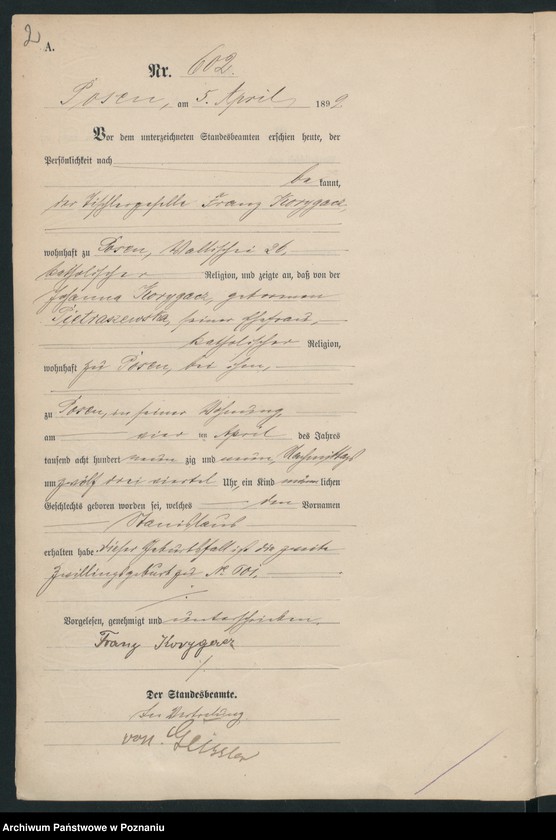 2
A.
Nr. 602.
Posen, am 5. April 1892
Vor dem unterzeichneten Standesbeamten erschien heute, der
Persönlichkeit nach
be kannt,
der Tischlergeselle Franz Korygacz,
wohnhaft zu Posen, Wallischei 26,
katholischer Religion, und zeigte an, daß von der
Johanna Korygacz, geborenen
Pietraszewska, seiner Ehefrau,
katholischer Religion,
wohnhaft zu Posen, bei ihm,
zu Posen, in seiner Wohnung,
am vier ten April des Jahres
tausend acht hundert neun zig und Nachmittags
um zwölf drei viertel Uhr, ein Kind männ lichen
Geschlechts geboren worden sei, welches den Vornamen
Stanislaus
erhalten habe. Dieser Geburtsfall ist die zweite
Zwillingsgeburt zu No 601.
Vorgelesen, genehmigt und unterschrieben.
Franz Korygacz
Der Standesbeamte.
In Vertretung
von Geissler
Archiwum Państwowe w Poznaniu